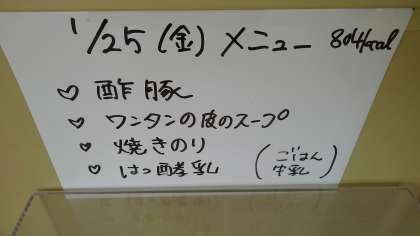 1/25(金)メニュー 804kcal
♡ 酢豚
♡ ワンタンの皮のスープ
♡ 焼きのり
♡ はっ酵乳 (ごはん
牛乳)